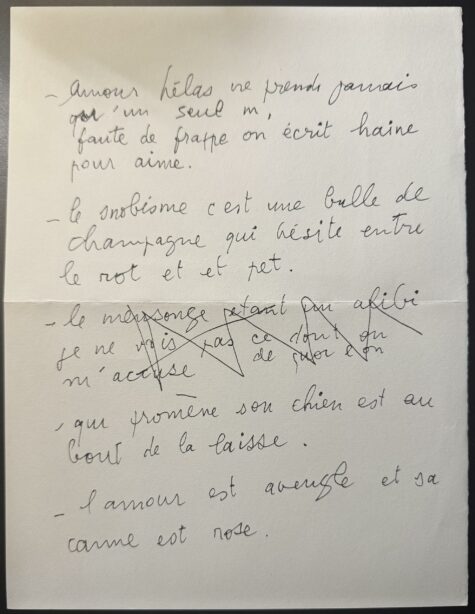 - Amour hélas ne prend jamais
qu'un seul m,
faute de frappe on écrit haine
pour aime.
- le snobisme c est une bulle de
champagne qui hésite entre
le rot et et pet.
- le mensonge étant un alibi
je ne vois pas ce dont on
m'accuse de quoi on
- qui promène son chien est au
bout de la laisse.
- l'amour est aveugle et sa
canne est rose.